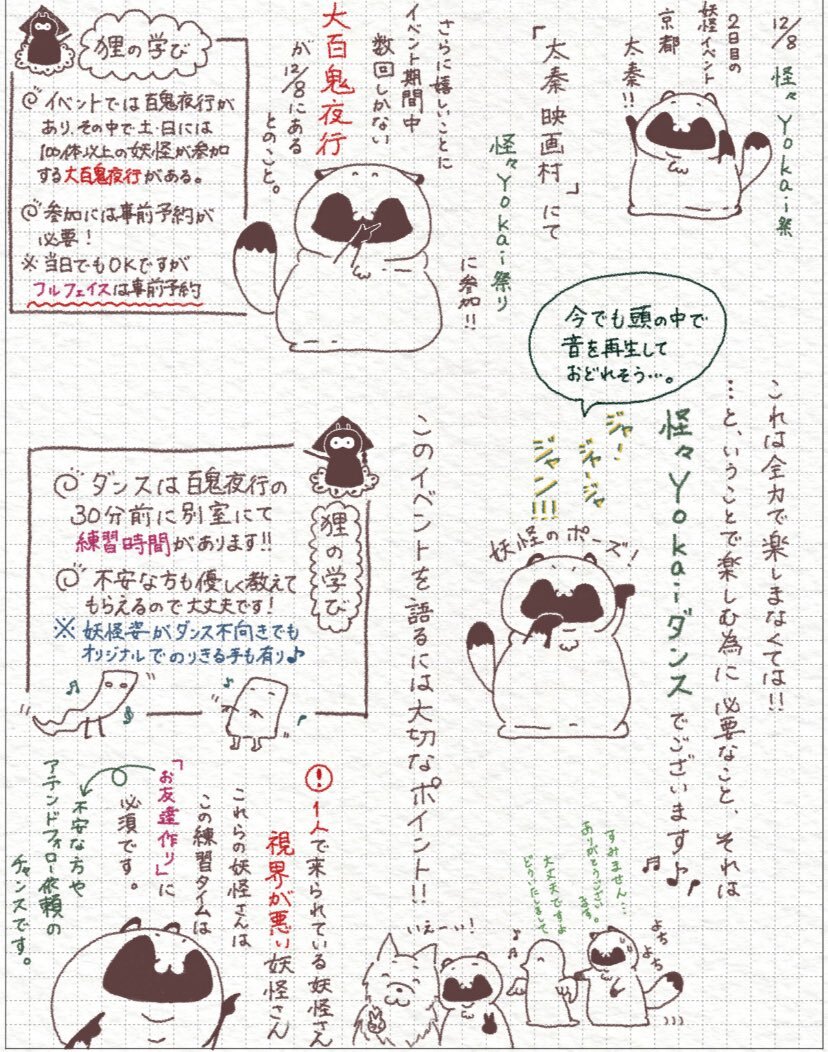 12/8 怪々Yokai祭
2日目の
妖怪イベント
京都
太秦!!
「太秦映画村」にて
怪々Yokai祭り
に参加!!
さらに嬉しいことに
イベント期間中
数回しかない
大百鬼夜行
が12/8にある
とのこと。
狸の学び
イベントでは百鬼夜行が
あり、その中で土・日には
100体以上の妖怪が参加
する大百鬼夜行がある。
参加には事前予約が
必要!
※当日でもOKですが
フルフェイスは事前予約
これは全力で楽しまなくては!!
…と、いうことで楽しむ為に必要なこと、それは
怪々Yokaiダンスでございます♪♪
今でも頭の中で
音を再生して
おどれそう…。
ジャー!
ジャージャ
ジャン!!!
妖怪のポーズ!
このイベントを語るには大切なポイント!!
狸の学び
ダンスは百鬼夜行の
30分前に別室にて
練習時間があります!!
不安な方も優しく教えて
もらえるので大丈夫です!
※妖怪姿がダンス不向きでも
オリジナルでのりきる手も有り♪
すみません…
ありがとうござい
ます。
大丈夫ですよ
どういたしまして
よち
よち
いえーい!
! 1人で来られている妖怪さん
視界が悪い妖怪さん
これらの妖怪さんは
この練習タイムは
「お友達作り」に
必須です。
不安な方や
アテンドフォロー依頼の
チャンスです。